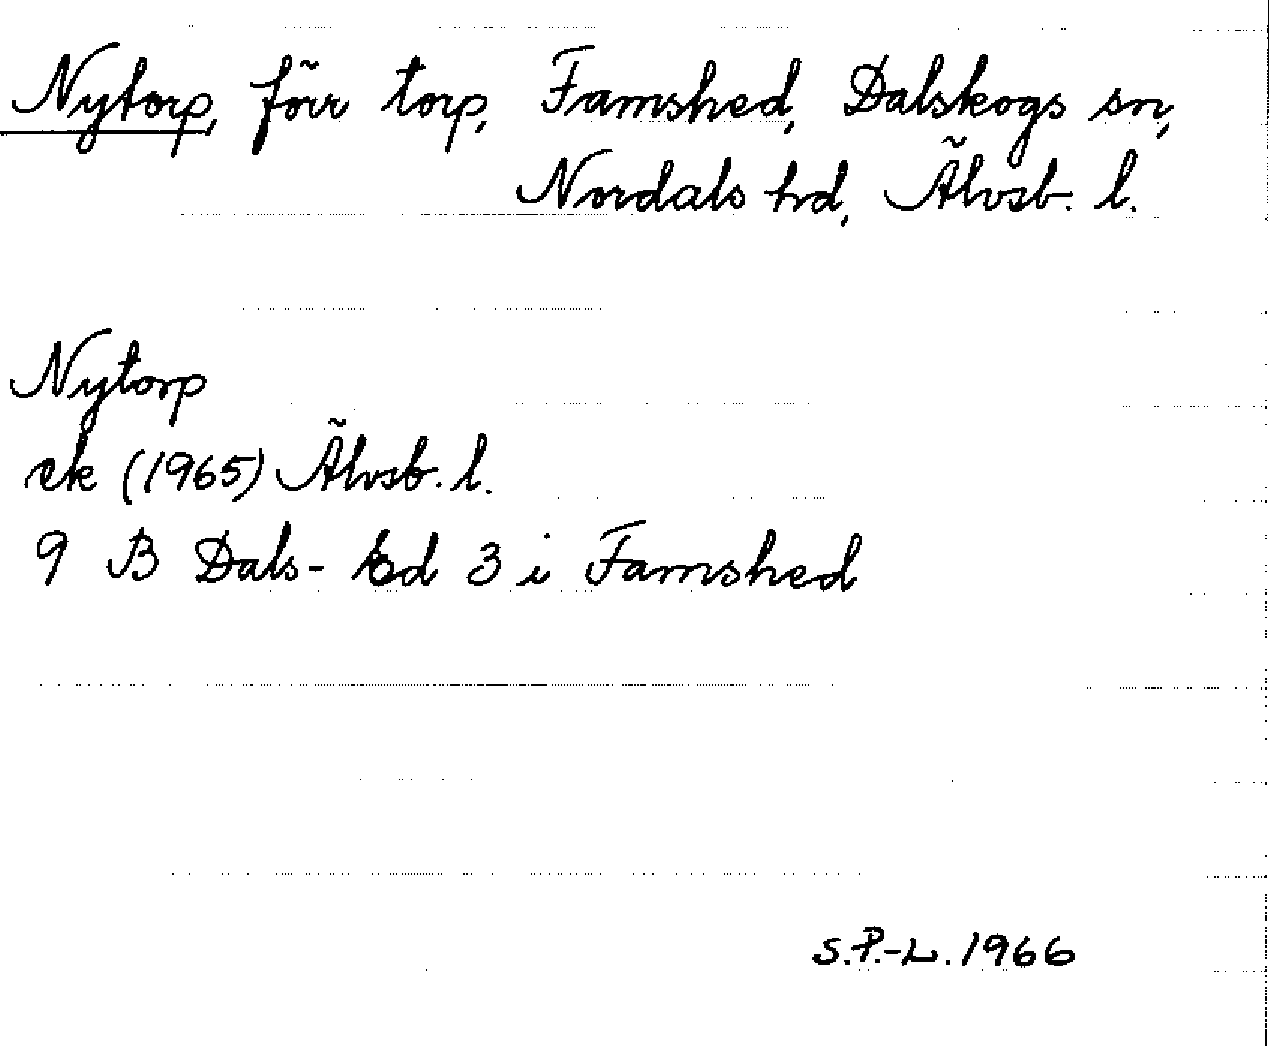 Nytorp, förr torp, Famshed, Dalskogs sn,
Nordals hd, Älvsb. l.
Nytorp
ek (1965) Älvsb. l.
9 B Dals-Ed 3 i Famshed
S.P.-L. 1966